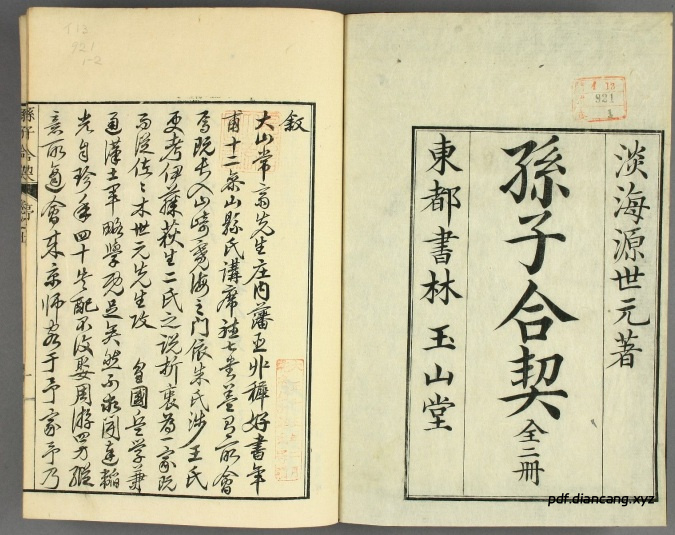 淡海源世元著
孫子合契全二冊
東都書林 玉山堂
敘
大山常齋先生庄内藩臣丱穉好書年
甫十二參山縣氏講席
焉既長入山崎髙海之門依朱氏涉王氏
更考伊藤荻生二氏之說折衷為一家既
而從佐々木世元先生攻 皇國兵學兼
通漢土軍略學既足矣然不求聞達韜
光自珍年四十失配不復娶周游四方縱
意所適會來京師客于予家予乃
孫子合契
4 13
821
1
pdf.diancang.xyz